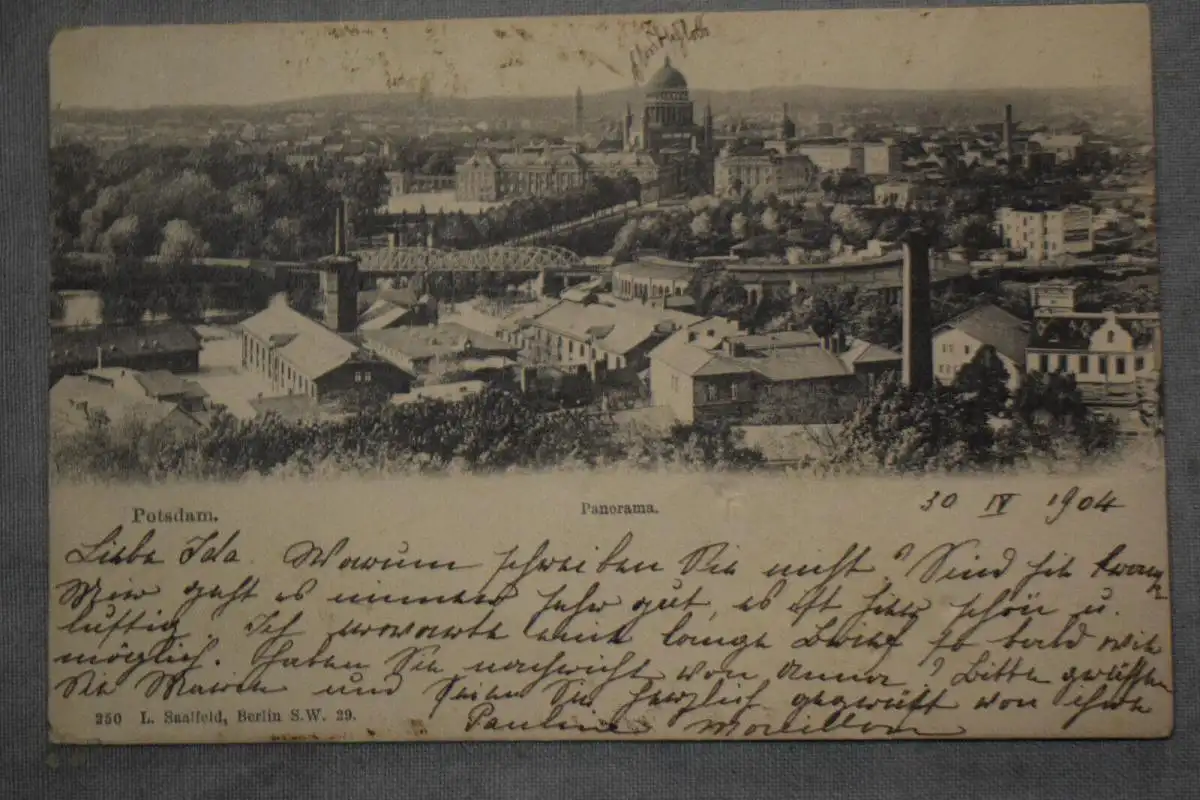 Potsdam.
Panorama.
30 IV 1904
Liebe Ida. Warum schreiben Sie nicht? Sind sie krank
Mir geht es immer sehr gut, es ist hier schön u.
luftig. Ich erwarte eine lange Brief so bald wie
möglich. Haben Sie nachricht von Anna? Bitte grüssen
Sie Marie und seien Sie herzlich gegrüsst von ihre
Pauline Morillon
250 L. Saalfeld, Berlin S.W. 29.